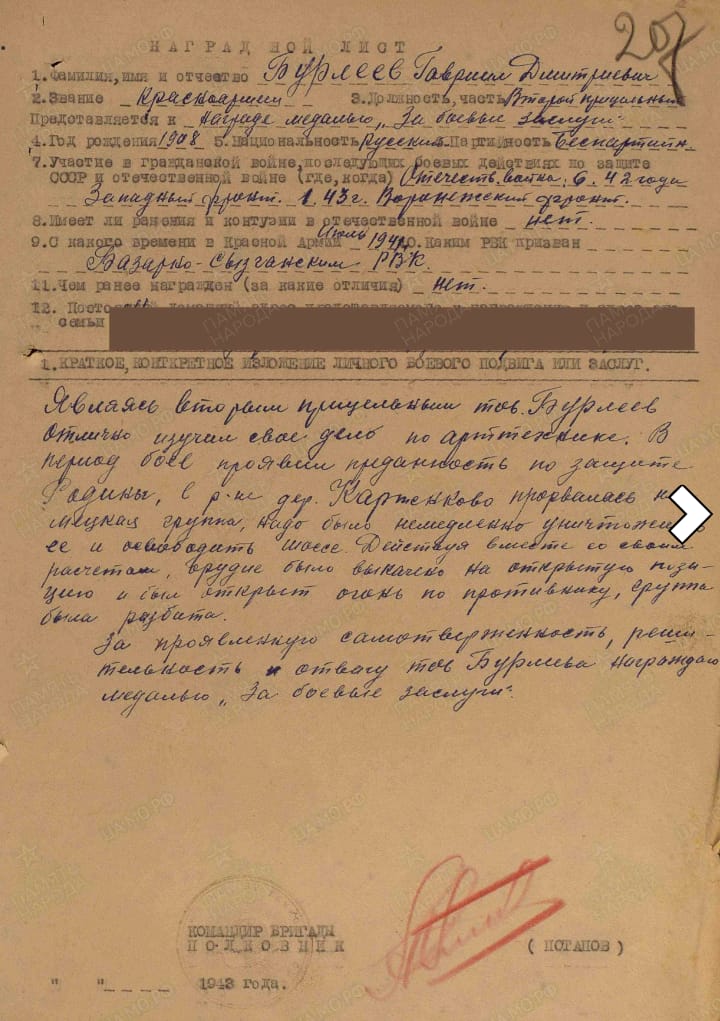 207
НАГРАДНОЙ ЛИСТ
1. Фамилия, имя и отчество Бурлеев Гавриил Дмитриевич
2. Звание красноармеец 3. Должность, часть Второй прицельный
Представляется к награде медалью „За боевые заслуги"
4. Год рождения 1908 5. Национальность Русский Партийность Беспартийн.
7. Участие в гражданской войне, последующих боевых действиях по защите
СССР и отечественной войне (где, когда) Отечеств. война. 6.42 года
Западный фронт. 1.43г. Воронежский фронт.
8. Имеет ли ранения и контузии в отечественной войне нет.
9. С какого времени в Красной Армии Июль 1941 10. Каким РВК призван
Базарно-Сызганским РВК.
11. Чем ранее награжден (за какие отличия) нет.
12.
семьи
1. КРАТКОЕ, КОНТКРЕТНОЕ ИЗЛОЖЕНИЕ ЛИЧНОГО БОЕВОГО ПОДВИГА ИЛИ ЗАСЛУГ.
Являясь вторым прицельным тов. Бурлеев
отлично изучил свое дело по арттехнике. В
период боев проявил преданность по защите
Родины, в р-не дер. Карженково прорвалась
мецкая группа, надо было немедленно
ее и освободить шоссе. Действуя вместе со своим
расчетом, орудие было выкачено на открытую пози-
цию и был открыт огонь по противнику, группа
была разбита.
За проявленную самотверженность, реши-
тельность и отвагу тов Бурлеева награждаю
медалью „За боевые заслуги".
КОМАНДИР БРИГАДЫ
ПОЛКОВНИК ( ПОТАПОВ )
" " 1943 года.